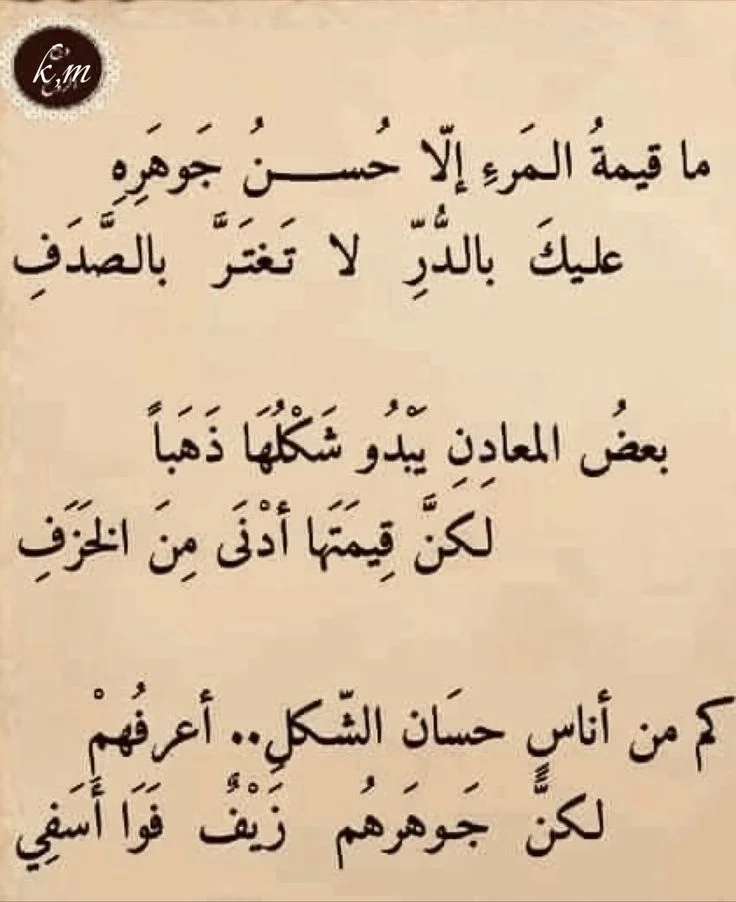 k,m
ما قيمةُ المَرءِ إلّا حُســـــنُ جَوهَرِهِ
عليكَ بالدُّرِّ لا تَغتَرَّ بالصَّدَفِ
بعضُ المعادِنِ يَبْدُو شَكْلُهَا ذَهَباً
لكنَّ قِيمَتَها أدْنَى مِنَ الخَزَفِ
كم من أناسٍ حسَان الشّكلِ.. أعرفُهمْ
لكنَّ جَوهَرَهُم زَيْفٌ فَوَا أَسَفِي